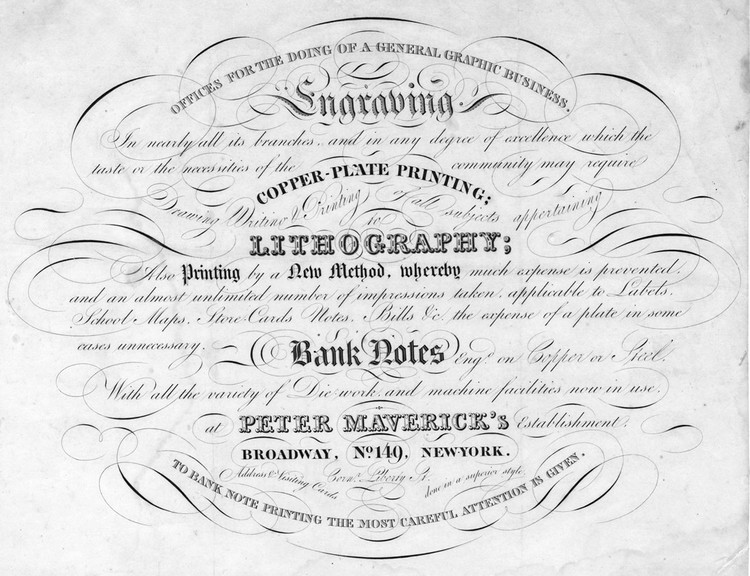 OFFICES FOR THE DOING OF A GENERAL GRAPHIC BUSINESS.
Engraving.
In nearly all its branches, and in any degree of excellence which the
taste or the necessities of the community may require
COPPER-PLATE PRINTING;
Drawing Writing & Printing of all subjects appertaining
to
LITHOGRAPHY;
Also Printing by a New Method, whereby much expense is prevented,
and an almost unlimited number of impressions taken, applicable to Labels,
School Maps, Store Cards, Notes, Bills &c. the expense of a plate in some
cases unnecessary.
Bank Notes Engd. on Copper or Steel.
With all the variety of Die work, and machine facilities now in use,
at PETER MAVERICK's Establishment,
BROADWAY, No. 149, NEW-YORK.
Address & Visiting Cards Cornr. Liberty St. done in a superior style
TO BANK NOTE PRINTING THE MOST CAREFUL ATTENTION IS GIVEN.